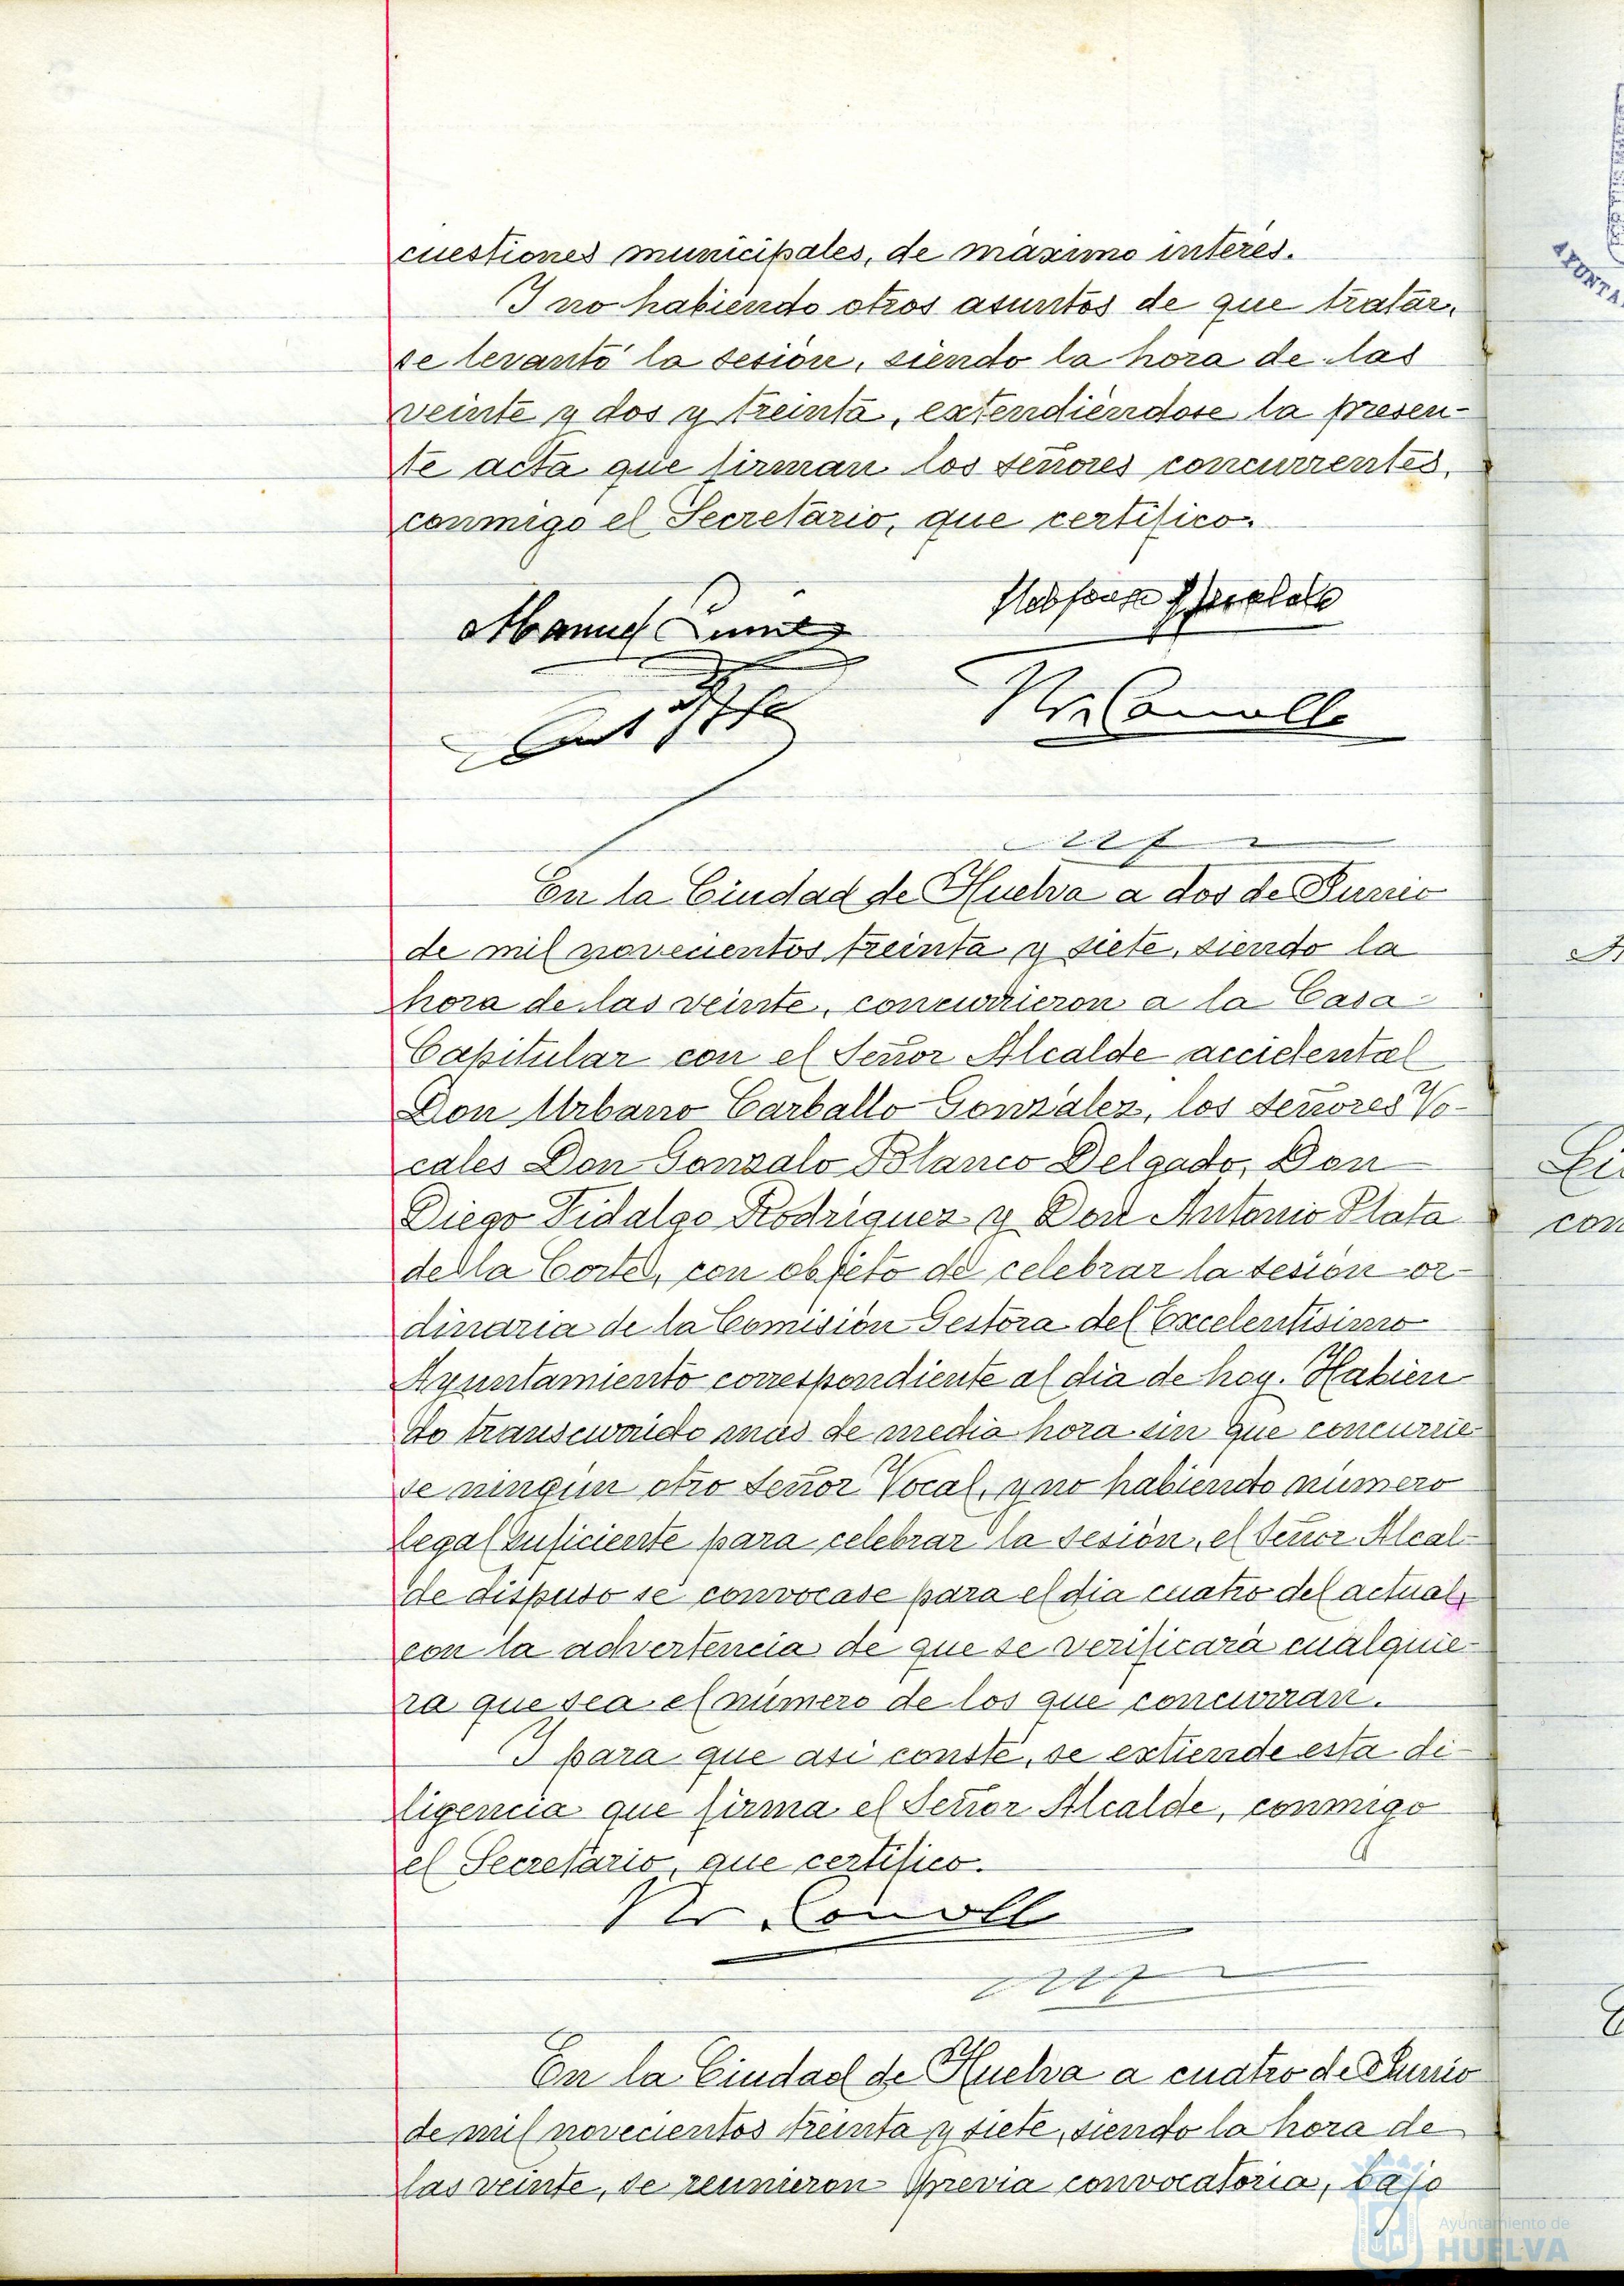 cuestiones municipales, de máximo interés.
Y no habiendo otros asuntos de que tratar,
se levantó la sesión, siendo la hora de las
veinte y dos y treinta, extendiéndose la presen-
te acta que firman los señores concurrentes,
conmigo el Secretario, que certifico.
Manuel
En la Ciudad de Huelva a dos de Junio
de mil novecientos treinta y siete, siendo la
hora de las veinte, concurrieron a la Casa
Capitular con el Señor Alcalde accidental
Don Urbano Carballo González, los señores Vo-
cales Don Gonzalo Blanco Delgado, Don
Diego Fidalgo Rodríguez y Don Antonio Plata
de la Corte, con objeto de celebrar la sesión or-
dinaria de la Comisión Gestora del Excelentísimo
Ayuntamiento correspondiente al día de hoy. Habien-
do transcurrido más de media hora sin que concurrie-
se ningún otro Señor Vocal, y no habiendo número
legal suficiente para celebrar la sesión, el Señor Alcal-
de dispuso se convocase para el día cuatro del actual,
con la advertencia de que se verificará cualquie-
ra que sea el número de los que concurran.
Y para que así conste, se extiende esta di-
ligencia que firma el Señor Alcalde, conmigo
el Secretario, que certifico.
En la Ciudad de Huelva a cuatro de Junio
de mil novecientos treinta y siete, siendo la hora de
las veinte, se reunieron previa convocatoria, bajo
Ayuntamiento de
HUELVA